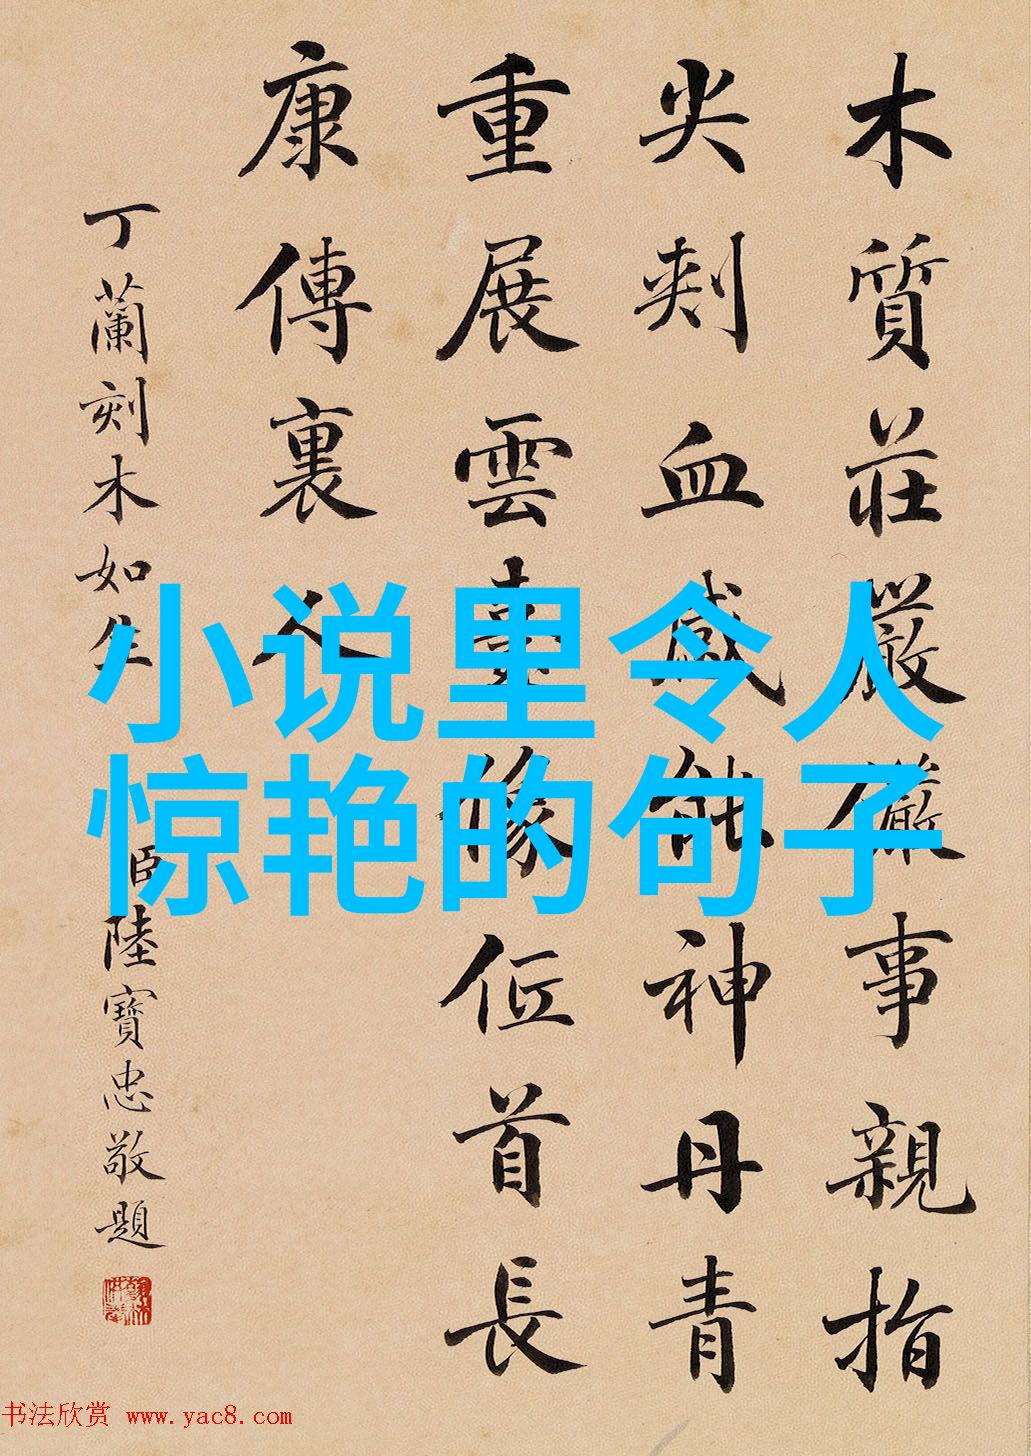 木質莊嚴儼事親指
尖刺血感能神丹青
重展雲臺像低首長
康傳裏人
丁蘭刻木如生
臣陸寶忠敬題
小说里令人
惊艳的句子
书法欣赏 www.yac8.com